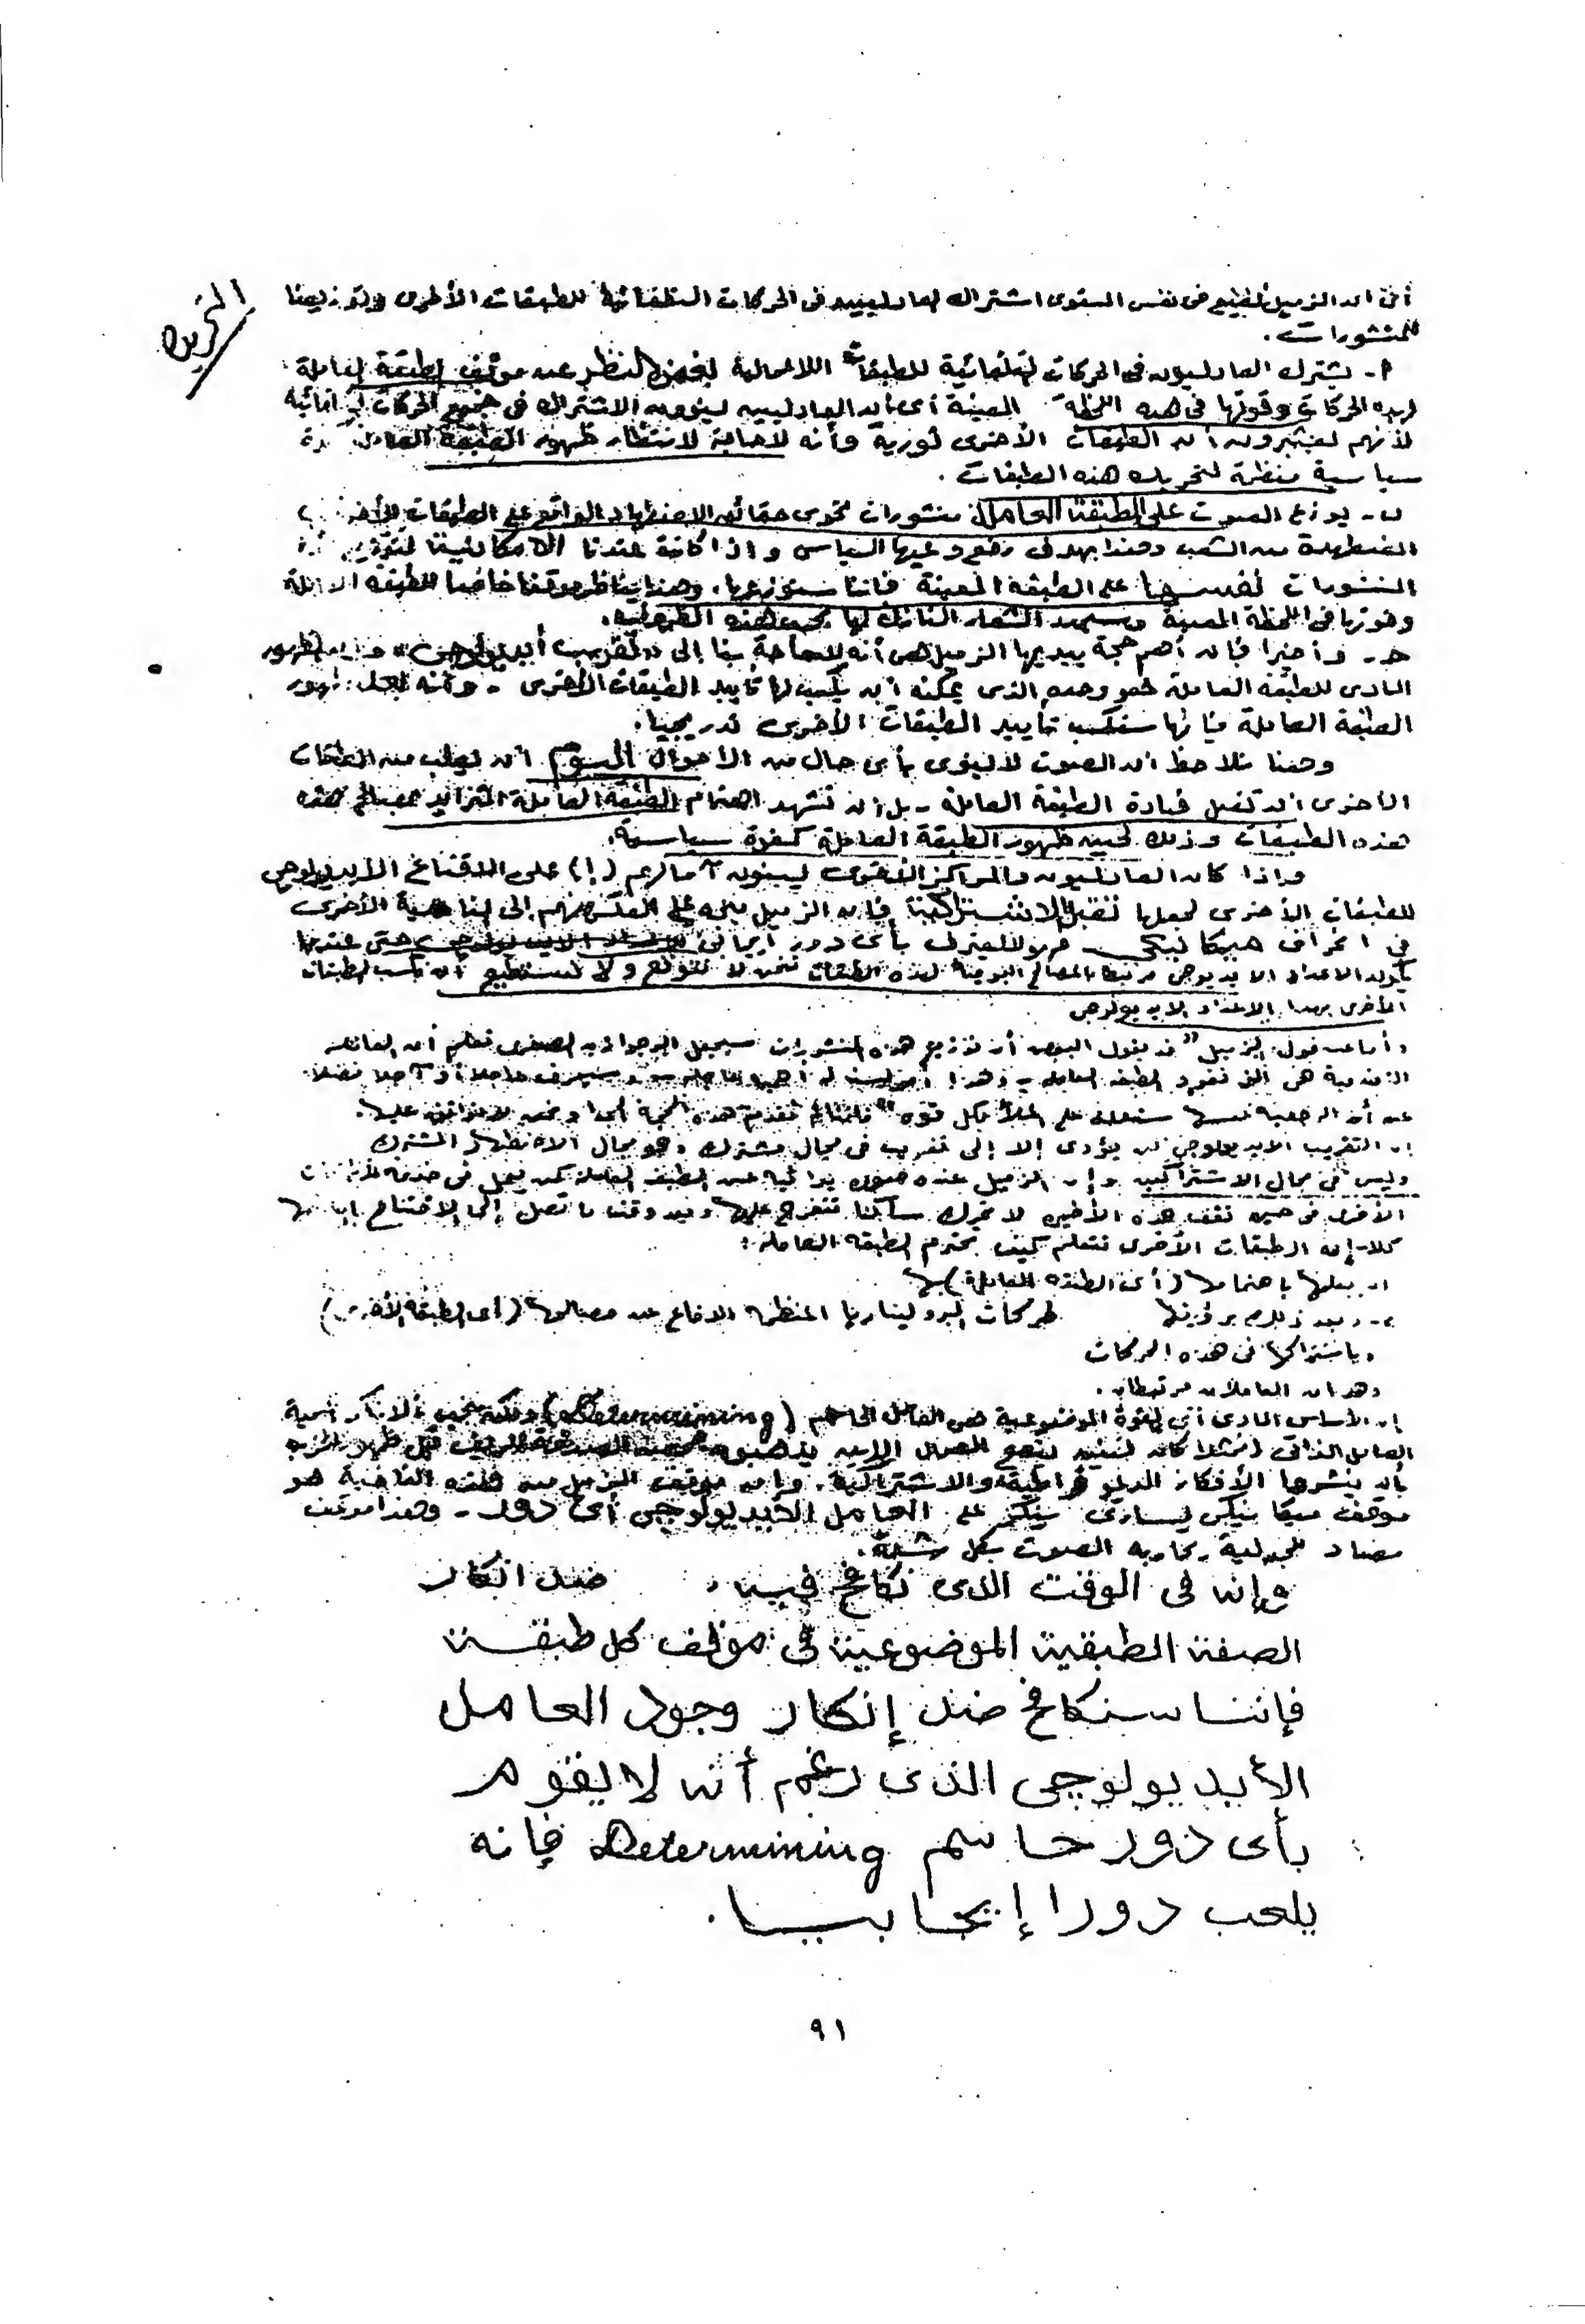 أى أن الزميل يضع فى نفس المستوى اشتراك العادليين فى الحركات التلقائية للطبقات الأخرى وتوزيعنا
للمنشورات.
أ - يشترك العادليون فى الحركات التلقائية للطبقات اللاعمالية بغض النظر عن موقف الطبقة العاملة
لهذه الحركات وقوتها فى هذه اللحظة المعينة أى أن العادليين ينوون الاشتراك فى جميع الحركات التلقائية
لأنهم يعتبرون أن الطبقات الأخرى ثورية وأنه لا حاجة لانتظار ظهور الطبقة العاملة
سياسية منظمة لتحريك هذه الطبقات.
ب - يوزع الصوت على الطبقة العاملة منشورات تحوى حقائق الاضطهاد الواقع على الطبقات الأخرى
المضطهدة من الشعب وهذا بهدف رفع وعيها السياسى واذا كانت عندنا الامكانية لتوزيع
المنشورات نفسها على الطبقة المعينة فاننا سنوزعها. وهذا يناظر موقفنا خاضعا للطبقة العاملة
وقوتها فى اللحظة المعينة
حـ - وأخيرا فان أهم حجة يبديها الزميل هى أنه لا حاجة بنا إلى "تقريب أيديولوجى" الظهور
المادى للطبقة العاملة هو وحده الذى يمكنه أن يكسب لها تأييد الطبقات الأخرى - وأنه ظهور
الطبقة العاملة فإنها ستكسب تأييد الطبقات الأخرى تدريجيا.
وهنا نلاحظ أن الصوت لا ينوى بأى حال من الأحوال اليوم أن يطلب من الطبقات
الأخرى أن تقبل قيادة الطبقة العاملة - بل أن تشهد اهتمام الطبقة العاملة المتزايد بمصالح هذه
هذه الطبقات وذلك لحين ظهور الطبقة العاملة كقوة سياسية.
واذا كان العادليون والمراكز الأخرى يبنون آمالهم (!) على الاقناع الأيديولوجى
للطبقات الأخرى لجعلها تتقبل الاشتراكية فإن الزميل على العكس منهم إلى الناحية الأخرى
فى انحراف ميكانيكى فهو لا يعترف بأى دور ايجابى للإعداد الايديولوجى حتى عندما
يكون الاعداد الايديولوجى مرتبطا بالمصالح اليومية لهذه الطبقات نحن لا نتوقع ولا نستطيع أن نكسب الطبقات
الأخرى بهذا الاعداد الايديولوجى
وأما عن قول الزميل "قد يقول البعض أن توزيع هذه المنشورات سيجعل البورجوازية الصغرى تعلم أن
هى التى تقود الطبقة العاملة - وهذا
عن أن الرجعية نفسها ستعلنه على الملأ بكل قوة" فلماذا تقدم هذه الحجة ونحن لا نوافق عليها.
إن التقريب الايديولوجى لن يؤدى إلا إلى تقريب فى مجال مشترك وهو مجال الاضطهاد المشترك
وليس فى مجال الاشتراكية وإن الزميل عنده صورة عن الطبقة العاملة كمن يعمل فى خدمة الطبقات
الأخرى فى حين تقف هذه الأخيرة لا تحرك ساكنا تتفرج عليها وبعد وقت ما تصل إلى الاقتناع
كلا - إن الطبقات الأخرى تتعلم كيف تحترم الطبقة العاملة:
ا - بعلمها باهتمام (أى الطبقة العاملة) بها
٢ - وبعد ذلك برؤيتها لحركات البروليتاريا المنظمة للدفاع عن مصالحها (أى الطبقة الأخرى)
وباشتراكها فى هذه الحركات
وهذان العاملان مرتبطان.
إن الأساس المادى أى القوة الموضوعية هى العامل الحاسم (Determining) ولكنه يجب ألا ننكر أهمية
العامل الذاتى (فمثلا كان لينين ينصح العمال الذين يذهبون الريف قبل ظهور الحزب
بأن ينشروا الأفكار الديموقراطية والاشتراكية. وإن موقف الزميل من هذه الناحية هو
موقف ميكانيكى يسارى ينكر على العامل الأيديولوجى أى دور - وهذا موقف
مضاد للجدلية يحاربه الصوت بكل شدة.
وإنه فى الوقت الذى نكافح فيه ضد انكار
الصفة الطبقية الموضوعية فى موقف كل طبقة
فإننا سنكافح ضد إنكار وجود العامل
الأيديولوچى الذى رغم أنه لا يقوم
بأى دور حاسم Determining فإنه
يلعب دورا إيجابيا.
٩١